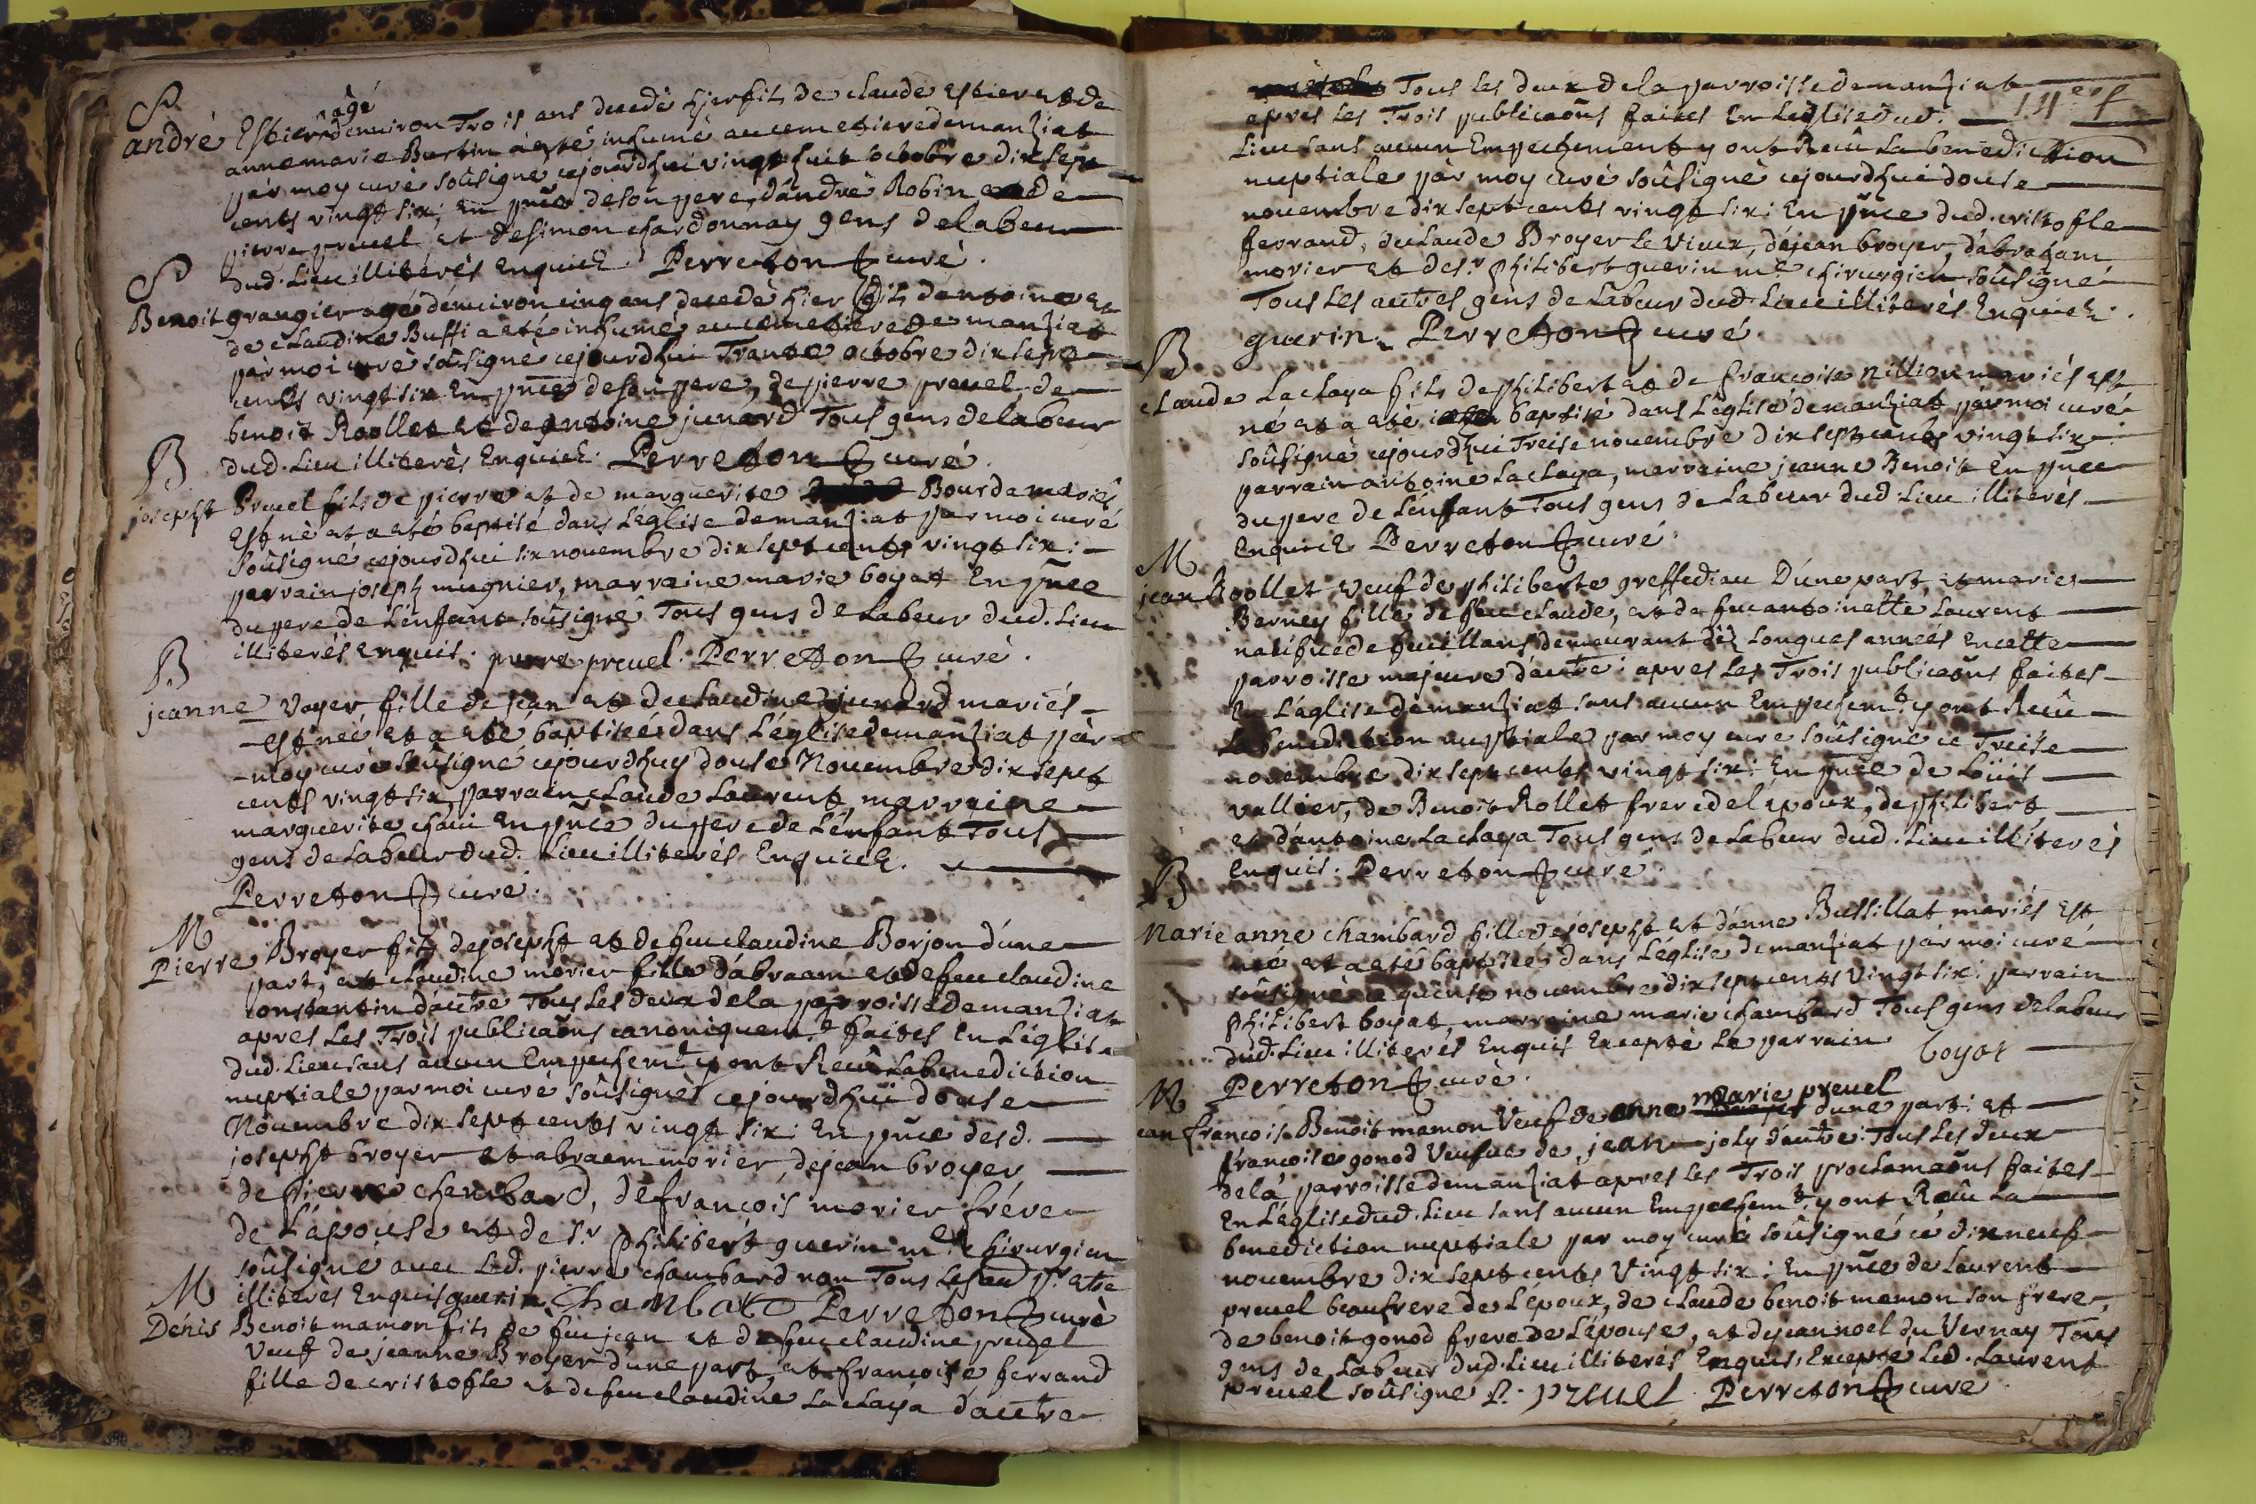 S
âgé
andré Estier denviron Trois ans decedé hier fils de claude Estier et de
annemarie Burtin à esté inhumé au cemetiere de manziat
par moy curé soûsigné cejourdhui vingt huit octobre dix sept
cents vingt six; En pñce de son pere, d'andré Robin de
pierre preuel et de simon chardonnay gens de labeur
dud. Lieu illiterés Enquick. Perreton curé.
S
Benoit grangier agé d'environ cinq ans decedé hier fils dantoine et
de claudine Buffi a eté inhumé au cemetiere de manziat
par moi curé soûsigné cejourdhui Trante octobre dix sept
cents vingt six En pñce de son pere, de pierre preuel de
benoit Roollet et de antoine junard Tous gens de labeur
dud. Lieu illiterés Enquick. Perreton curé.
B
joseph Preuel fils de pierre et de marguerite Bourda mariés
Est né et a eté baptisé dans L'église de manziat par moi curé
soûsigné cejourdhui six novembre dix sept cents vingt six:
parrain joseph mugnier, marraine marie boyat En pñce
du pere de L'enfant soûsigné Tous gens de Labeur dud. Lieu
illiterés enquis. pierre preuel. Perreton curé.
B
jeanne Voyer fille de jean et de claudine junard mariés
est neé et a eté baptiseé dans L'église de manziat par
moy curé soûsigné cejourdhuy douse Novembre dix sept
cents vingt six, parrain claude Laurent, marraine
marguerite chaui En pñce du pere de L'énfant Tous
gens de Labeur dud. Lieu illiterés Enquick.
Perreton curé.
M
Pierre Broyer fils de joseph et de feu claudine Borjon d'une
part, et claudine morier fille d'abraam et de feu claudine
constantin d'autre Tous Les deux de la parroisse de manziat
apres Les Trois publicaõns canoniquemt faites En L'église
dud. Lieu sans aucun Empechemt y ont Reçû La benediction
nuptiale par moi curé soûsigné cejourdhui douse
Novembre dix sept cents vingt six: En pñce desd.
joseph broyer et abraam morier, de jean broyer
de pierre chambard, de françois morier frére
de L'épouse et de Sr philibert guerin me chirurgien
soûsigné avec Led. pierre chambard non Tous Les
illiterés Enquis guerin Chambard Perreton curé
M
Dénis Benoit mamon fils de feu jean et de feu claudine preuel
Veuf de jeanne Broyer d'une part, et françoise ferrand
fille de cristofle et de feu claudine La claya d'autre
Tous Les deux de la parroisse de manziat
apres Les Trois publicaõns faites En L'église dud.
Lieu sans aucun Empechement y ont Reçû La benediction
nuptiale par moy curé soûsigné cejourdhui douse
novembre dix sept cents vingt six: En pñce dud. cristofle
ferrand, de claude Broyer Le vieux, de jean broyer, d'abraham
morier et de sr philibert guerin me chirurgien soûsigné
Tous Les autres gens de Labeur dud. Lieu illiterés Enquick.
guerin. Perreton curé.
B
claude La claya fils de philibert et de françoise nillion mariés est
né et a eté baptisé dans L'église de manziat par moi curé
soûsigné cejourdhui Treise novembre dix sept cents vingt six
parrain antoine La claya, marraine jeanne Benoit En pñce
du pere de L'énfant Tous gens de Labeur dud. Lieu illiterés
Enquick Perreton curé.
M
jean Roollet veuf de philiberte greffediau D'une part et marie
Berney fille de feu claude, et de feu antoinette Laurent
natifve de feuillans demeurant dès Longues années En cette
parroisse majeure d'autre: apres Les Trois publicaõns faites
En L'église de manziat sans aucun Empechemt y ont Reçû
La benediction nuptiale par moy curé soûsigné ce Treise
novembre dix sept cents vingt six: En pñce de Loüis
vallier, de Benoit Rollet frere de l'époux, de philibert
et d'antoine La claya Tous gens de Labeur dud. Lieu illiterés
Enquis. Perreton curé.
B
Marie anne chambard fille de joseph et d'anne Bussillat mariés est
neé et a eté baptiseé dans L'église de manziat par moi curé
soûsigné ce quinse novembre dix sept cents vingt six: parrain
philibert boyat, marraine marie chambard Tous gens de labeur
dud. Lieu illiterés Enquis Excepté Le parrain boyat
Perreton curé.
M
marie preuel
jean françois Benoit mamon Veuf de anne d'une part: et
françoise gonod Veufve de jean joly d'autre: Tous Les deux
de la parroisse de manziat apres Les Trois proclamaõns faites
En L'église dud. Lieu sans aucun Empechemt y ont Reçû La
benediction nuptiale par moy curé soûsigné ce dix neuf
novembre dix sept cents vingt six: En pñce de Laurent
preuel beaufrere de L'époux, de claude benoit mamon son frere,
de benoit gonod frere de L'épouse, et de jean noel du Vernay Tous
gens de Labeur dud. Lieu illiterés Enquis, Excepté Led. Laurent
preuel soûsigné L. preuel Perreton curé